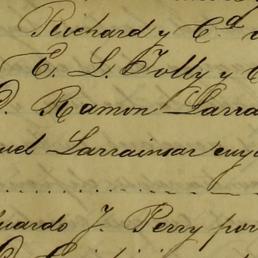 Richard y C.ª
E. L. Tolly y C
D. Ramon Larra
uel Larrainsar cuyo
uardo J. Perry por